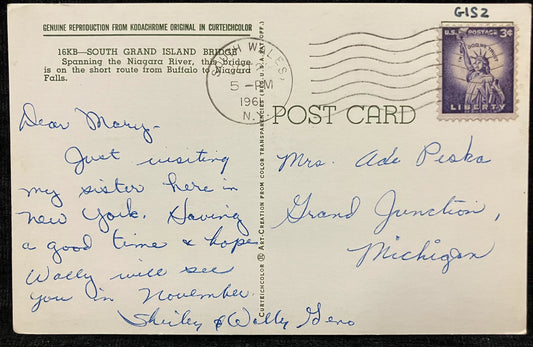 G152
GENUINE REPRODUCTION FROM KODACHROME ORIGINAL IN CURTEICHCOLOR
16KB—SOUTH GRAND ISLAND BRIDGE
Spanning the Niagara River, this Bridge
is on the short route from Buffalo to Niagara
Falls.
Dear Mary-
Just visiting
my sister here in
new York. Having
a good time & hope
Wally will see
you in November.
Shirley & Wally Gero
CURTEICHCOLOR ® ART CREATION FROM COLOR TRANSPARENCIES (REG. U.S.A. PAT. OFF.)
WALES,
5 - PM
196
N.Y.
POST CARD
U.S. POSTAGE 3¢
IN GOD WE TRUST
LIBERTY
Mrs. Ade Peska
Grand Junction,
Michigan